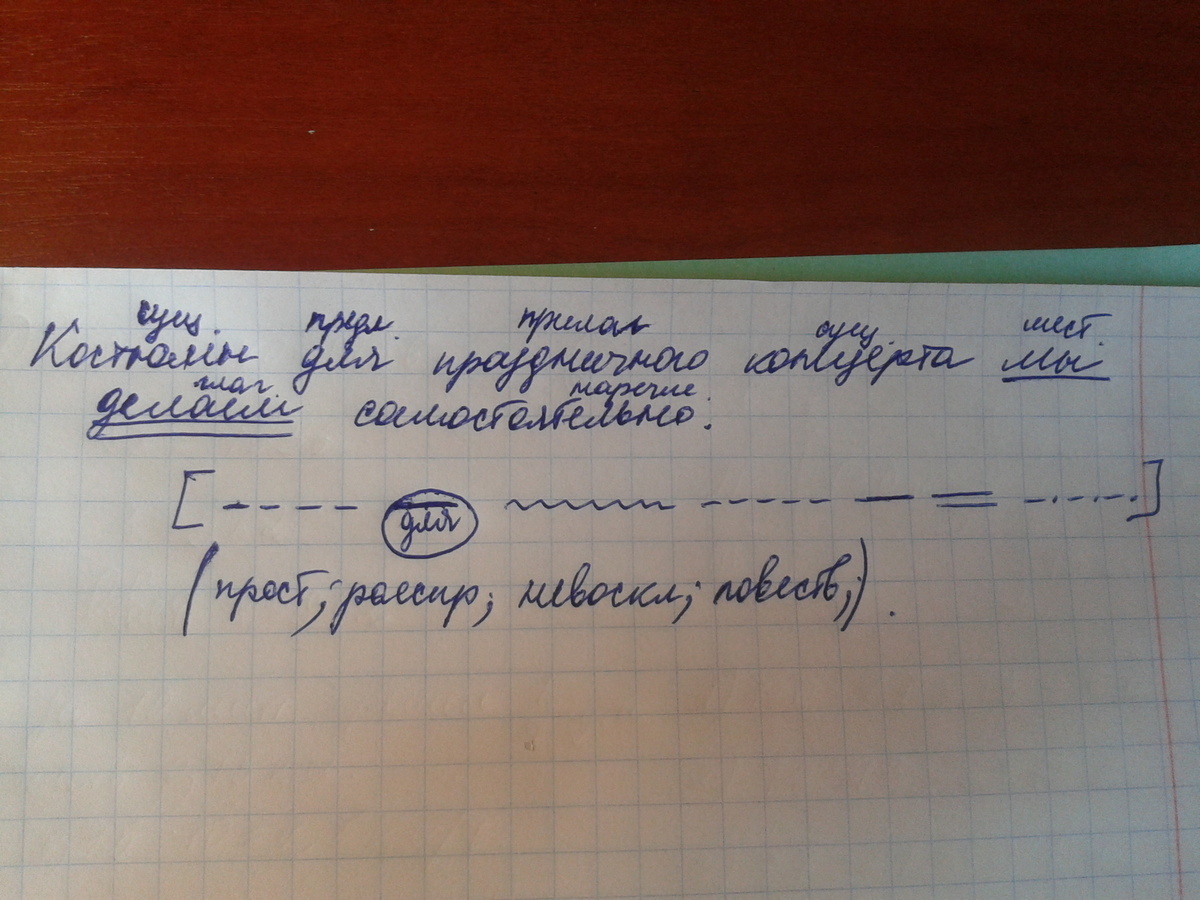 сущ. предл. прилаг сущ. мест.
Костюмы для праздничного концерта мы
глаг наречие.
делаем самостоятельно.
[ для ]
(прост; распр; невоскл; повеств;).